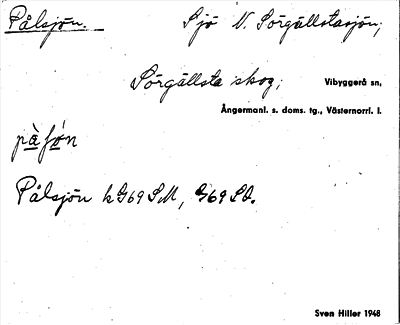 Pålsjön. Sjö N. Sörgällstasjön;
Sörgällsta skog; Vibyggerå sn,
Ångermanl. s. doms. tg., Västernorrl. l.
Pålsjön k G69 SM, G69 SO.
Sven Hiller 1948